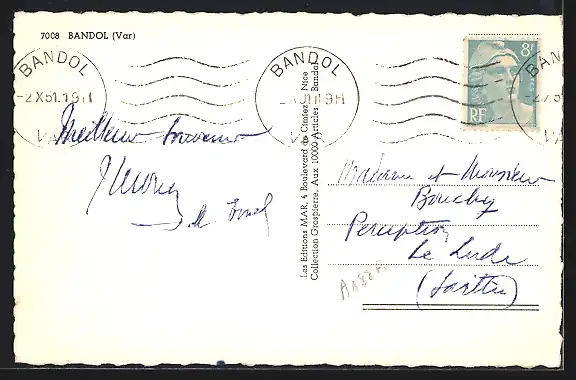 7008 BANDOL (Var)
BANDOL
-2 X 51. 19H
VAR
BANDOL
19H
8F
RF
BAN
-2
VA
Meilleur souvenir
Les Editions MAR, 4 Boulevard de Cimiez, Nice
Collection Grospierre. Aux 10000 Articles - Bandol
Madame et Monsieur
Bouchy
Perception
Le Lude
(Sarthe)
A188A